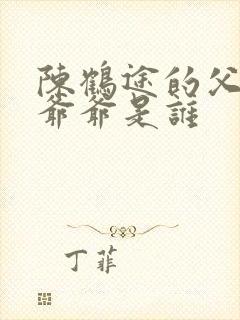 陳鶴途的父
爺爺是誰
丁菲